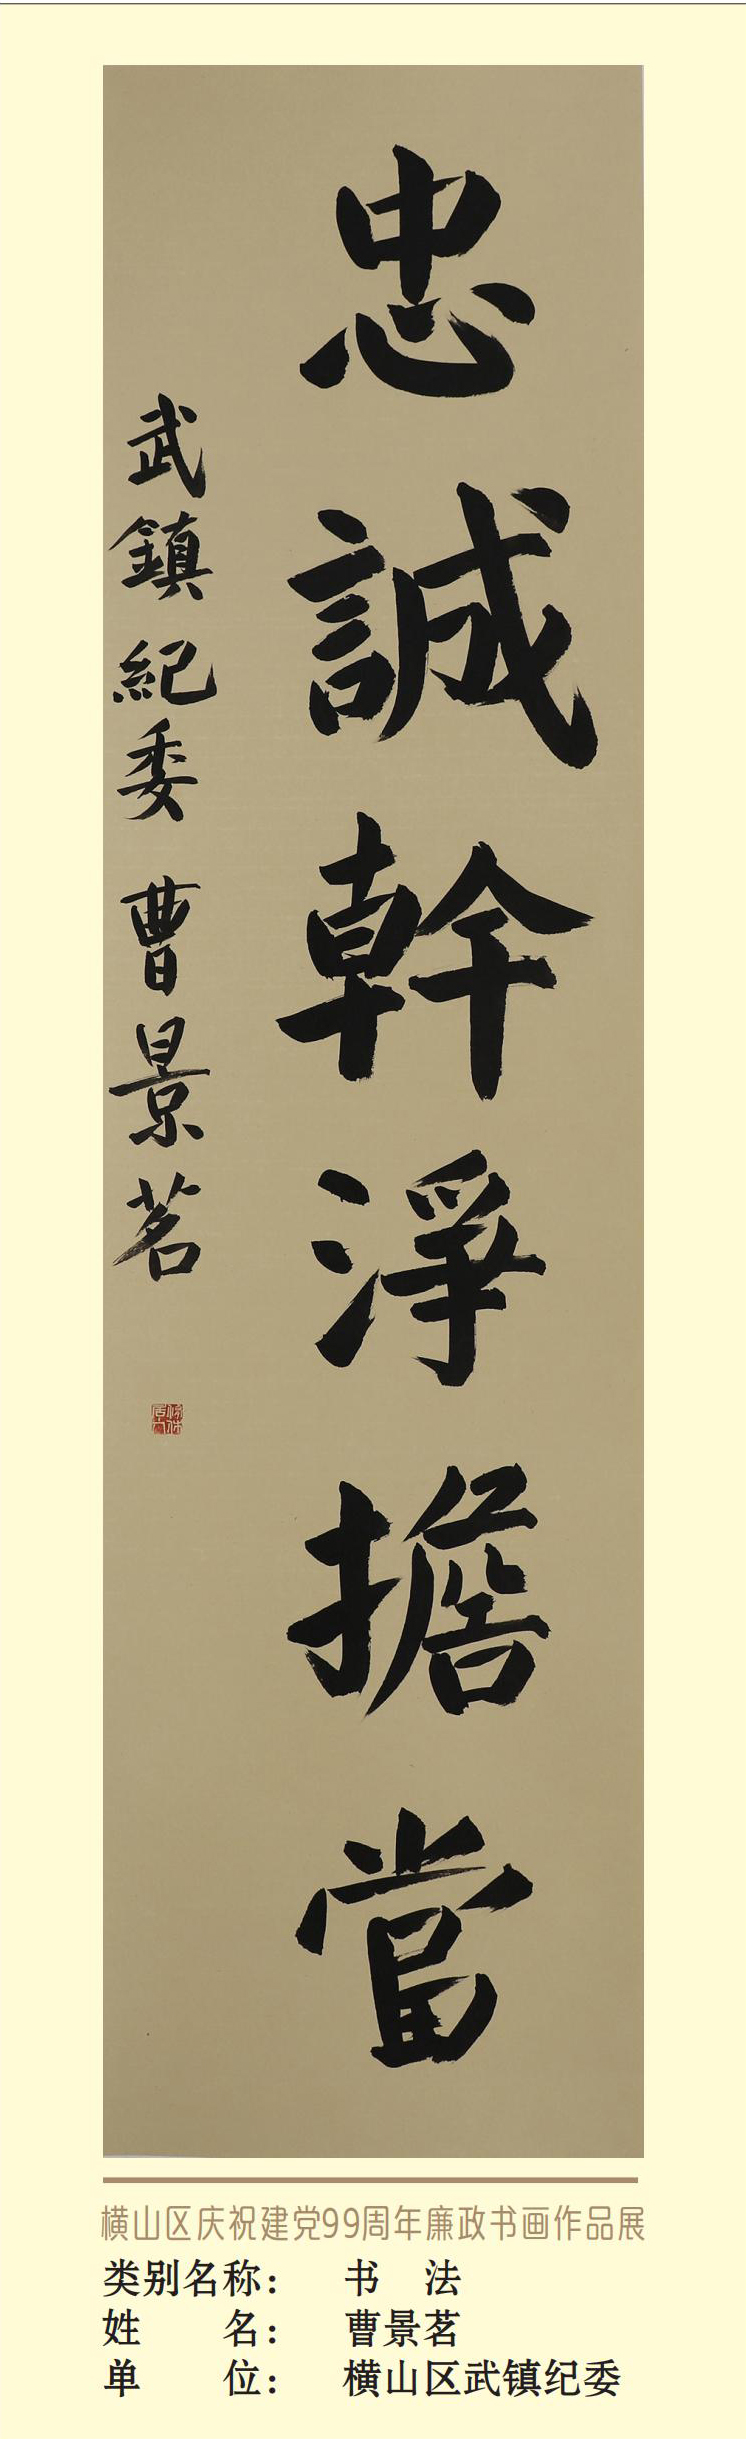 忠誠幹淨擔當
武鎮紀委 曹景茗
横山区庆祝建党99周年廉政书画作品展
类别名称： 书 法
姓 名： 曹景茗
单 位： 横山区武镇纪委